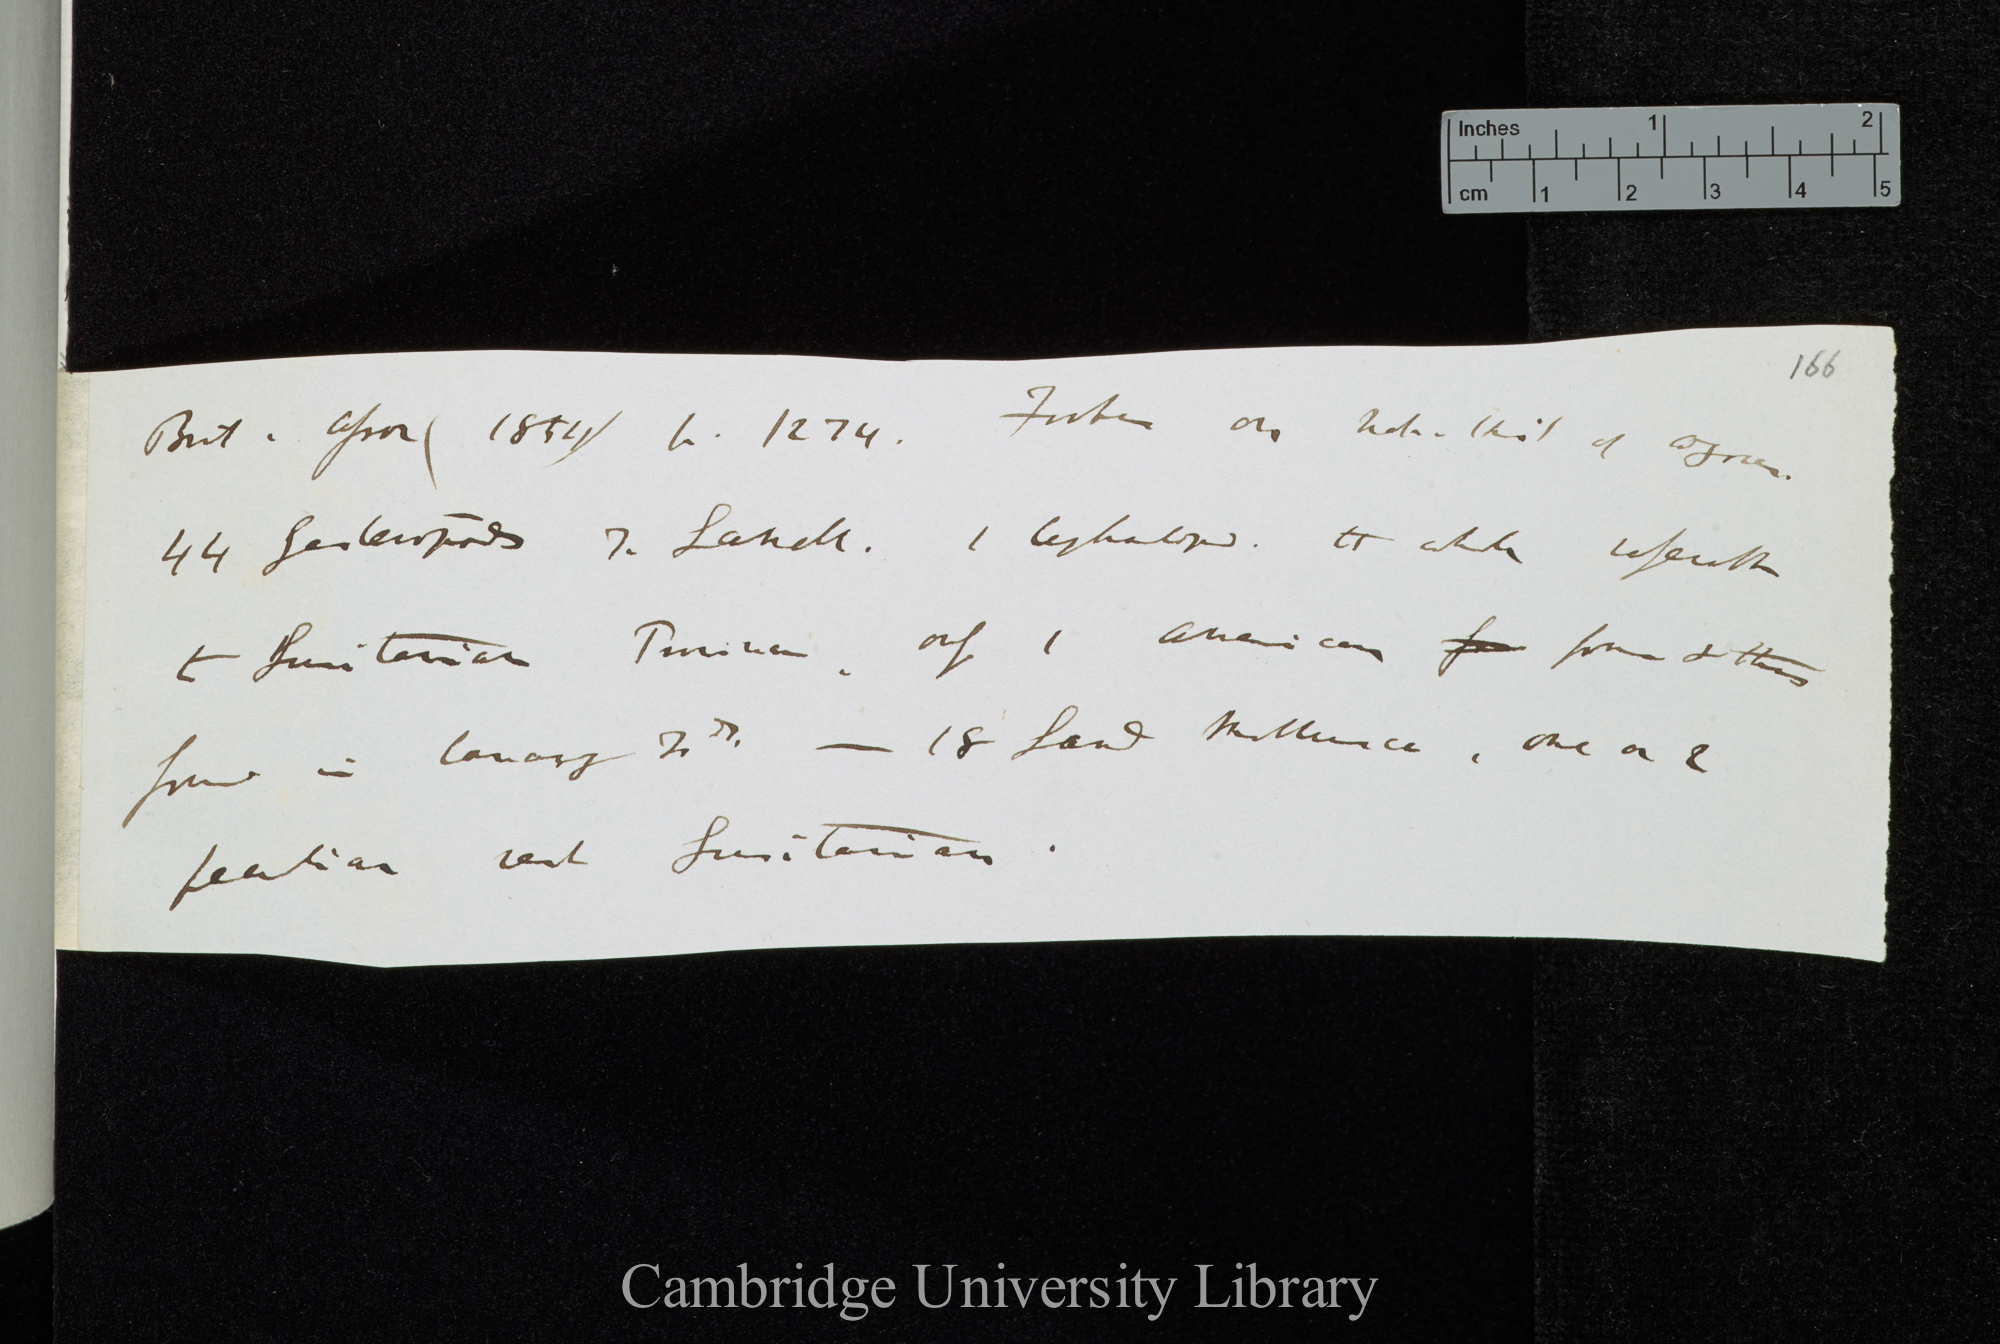 Inches 1 2
cm 1 2 3 4 5
166
Brit. Assoc (1854) p. 1274. Forbes on Nat. Hist of Azores.
44 Gasteropods 7. Lamell. 1 Cephalopod. the whole
to Lusitanian Province, only 1 American form & this
found in Canary — 18 Land Mollusca, one or 2
peculiar rest Lusitanian.
Cambridge University Library